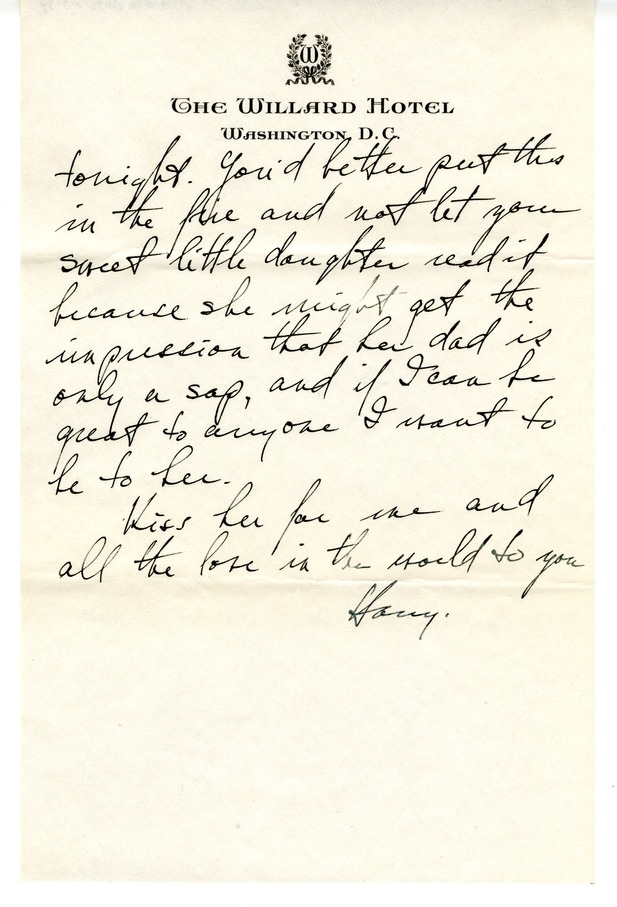 W
The Willard Hotel
Washington, D.C.
tonight. You'd better put this
in the fire and not let your
sweet little daughter read it
because she might get the
impression that her dad is
only a sap, and if I can be
great to anyone I want to
be to her.
Kiss her for me and
all the love in the world to you
Harry.